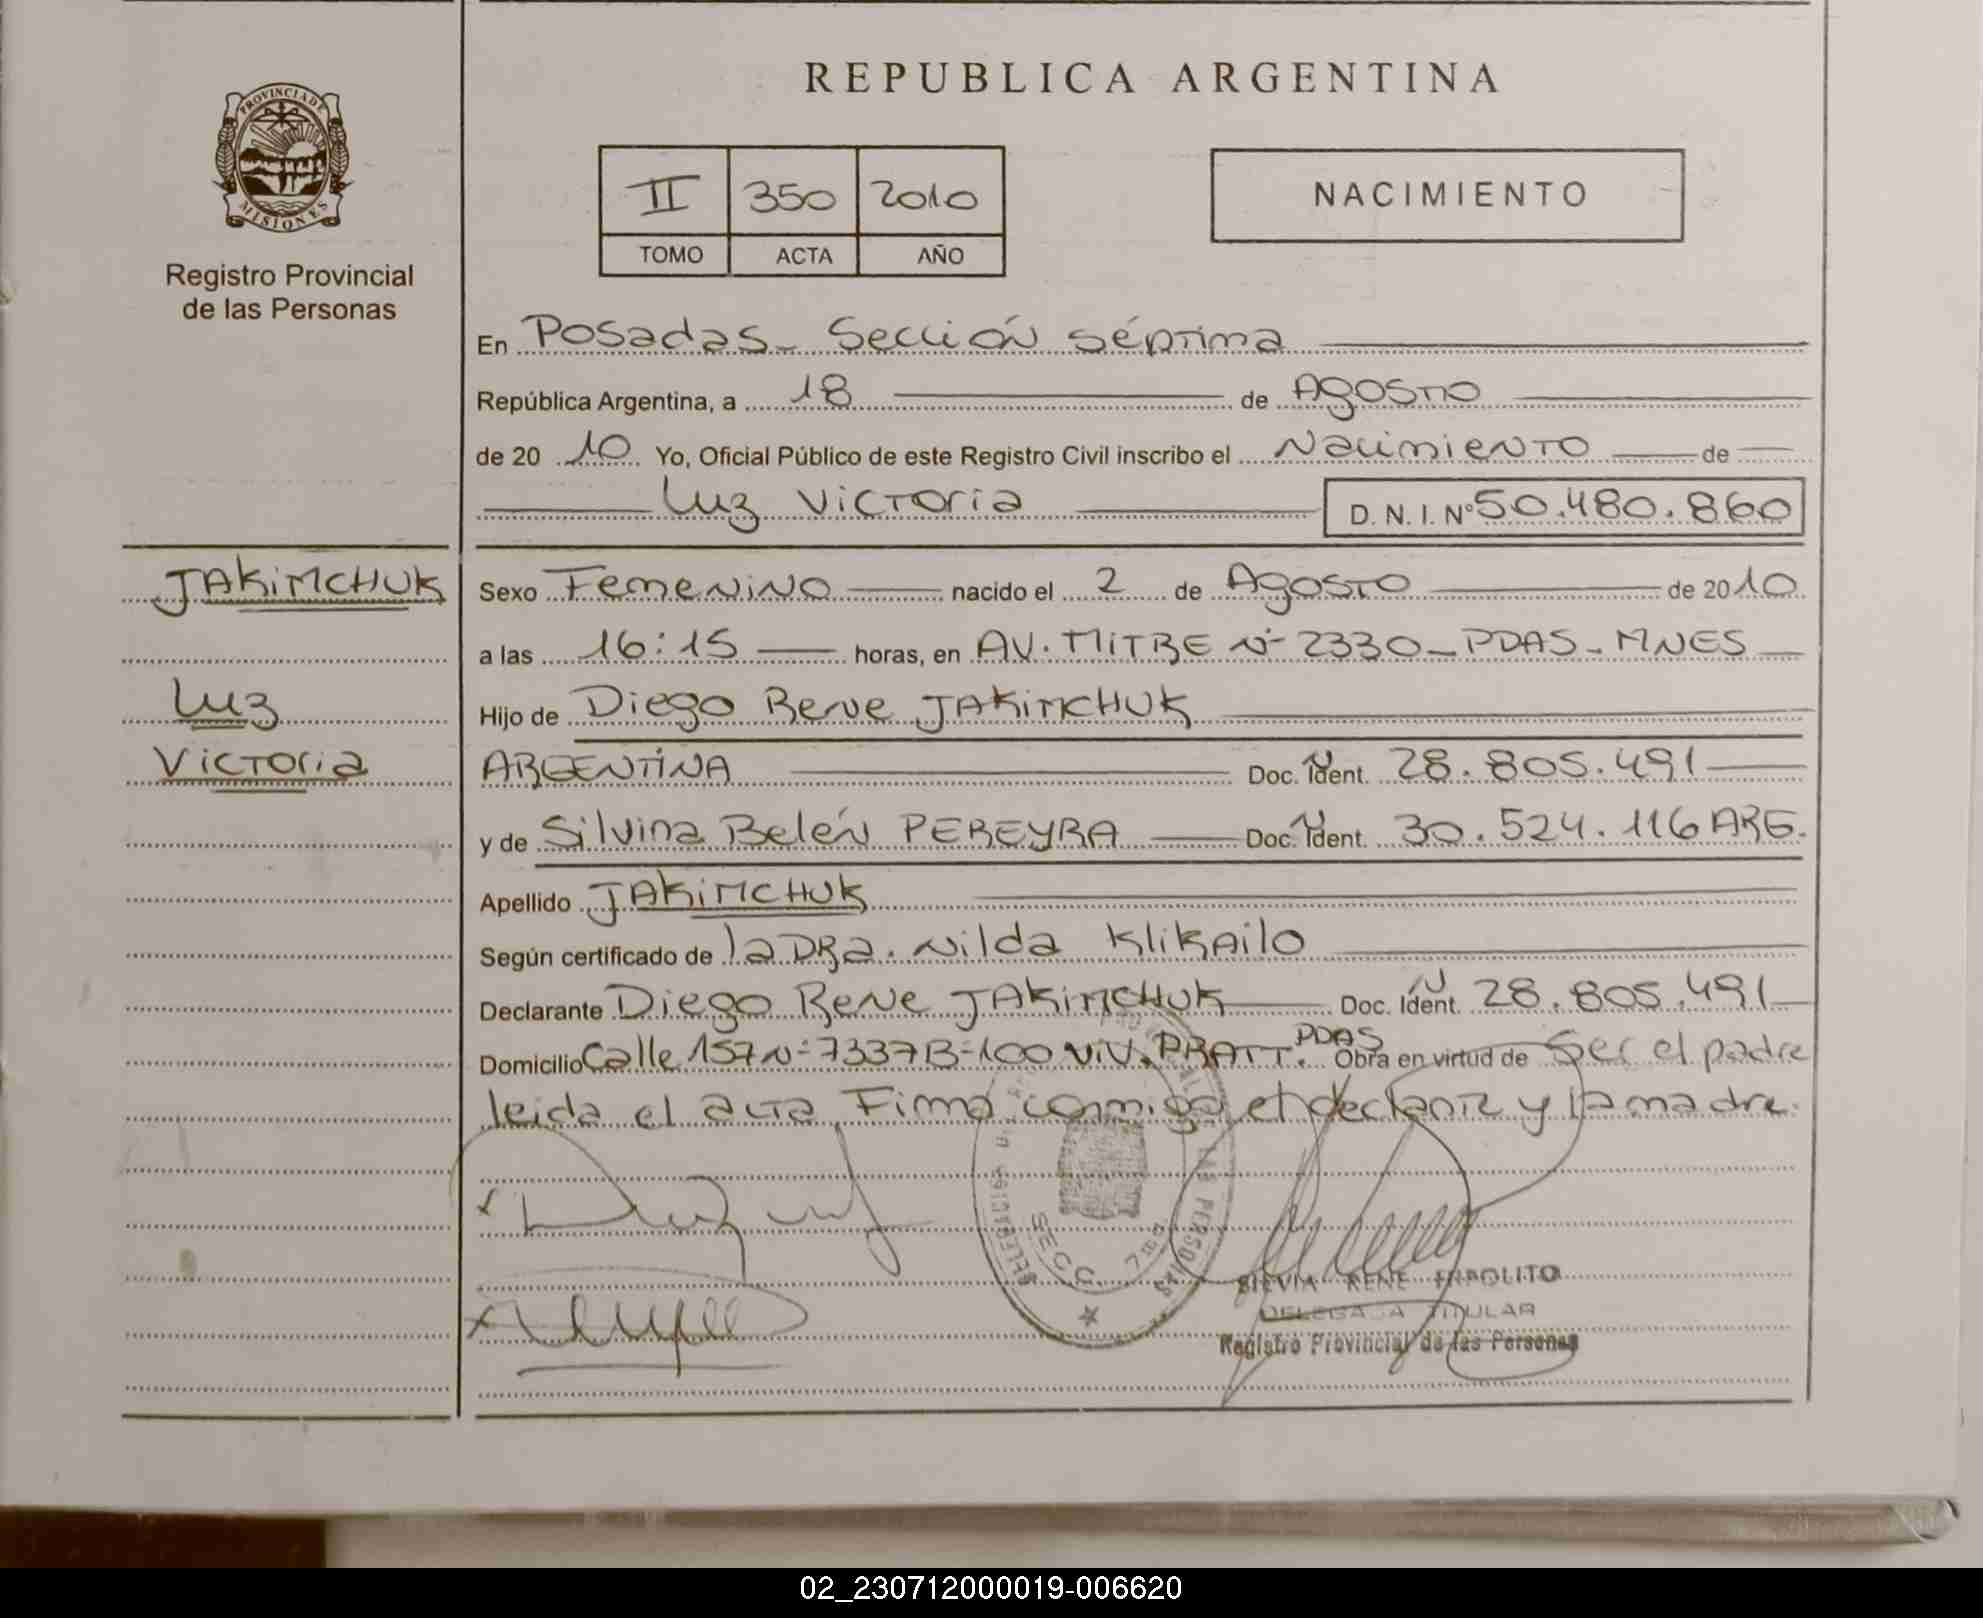 REPUBLICA ARGENTINA
PROVINCIA DE
MISIONES
Registro Provincial
de las Personas
II 350 2010
TOMO ACTA AÑO
NACIMIENTO
En Posadas - Sección séptima
República Argentina, a 18 de Agosto
de 20 10 Yo, Oficial Público de este Registro Civil inscribo el Nacimiento de
Luz Victoria D. N. I. Nº 50.480.860
JAKIMCHUK
Luz
Victoria
Sexo Femenino nacido el 2 de Agosto de 2010
a las 16:15 horas, en AV. MITRE Nº 2330 - PDAS - MNES
Hijo de Diego Rene JAKIMCHUK
ARGENTINA Doc. Ident. 28.805.491
y de Silvina Belén PEREYRA Doc. Ident. 30.524.116 ARG.
Apellido JAKIMCHUK
Según certificado de la DRA. Nilda Klikailo
Declarante Diego Rene JAKIMCHUK Doc. Ident. 28.805.491
Domicilio Calle 157 Nº 7337 B-100 VIV. PRATT. PDAS Obra en virtud de Ser el padre
leida el acta Firma conmigo el declante y la madre.
SECC. 7ma
SILVIA RENE IPPOLITO
DELEGADA TITULAR
Registro Provincial de las Personas
02_230712000019-006620